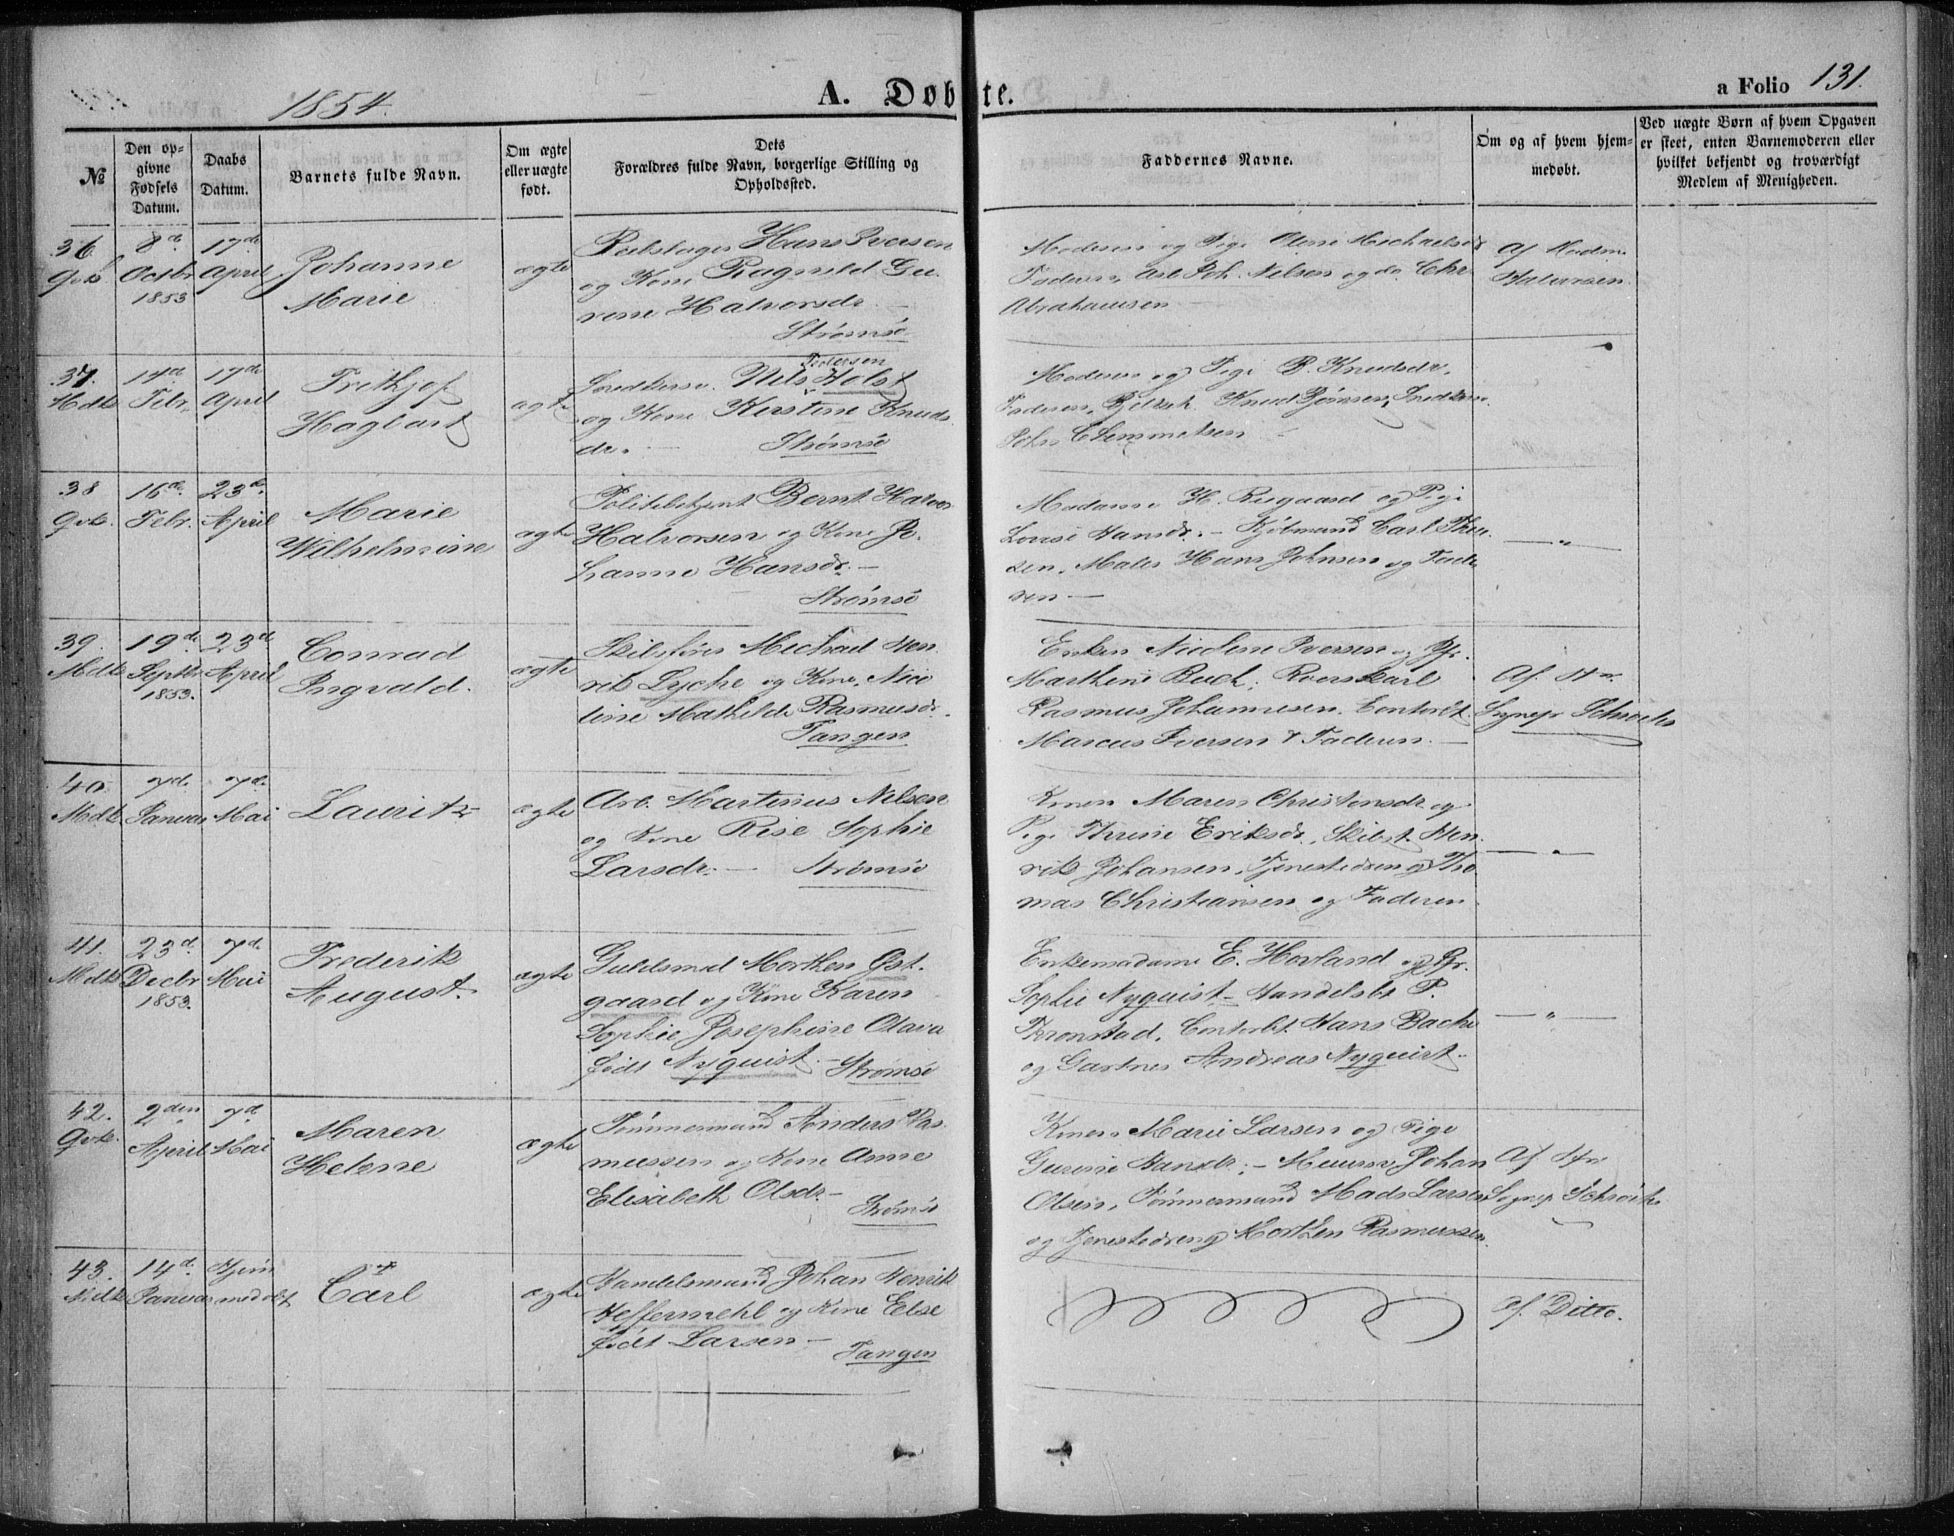 1854.
A. Døbte.
a Folio 131.
№
Den op-
givne
Fødsels
Datum.
Daabs
Datum.
Barnets fulde Navn.
Om ægte
eller uægte
født.
Dets
Forældres fulde Navn, borgerlige Stilling og
Opholdssted.
Faddernes Navne.
Om og af hvem hjem-
medøbt.
Ved uægte Børn af hvem Opgaven
er skeet, enten Barnemoderen eller
hvilket bekjendt og troværdigt
Medlem af Menigheden.
36
8de
Octbr
1853
17de
April
Johanne
Marie
ægte
Hans Iversen
og Kone Ragnild Gu-
rene Halvorsdr.
Strømsø
Moderen og Pige Oline Michaelsd
Faderen, Joh. Nilsen og do Chr
Abrahamsen
Af Madm.
Halvorsen
37.
Mdk
14de
Febr.
17de
April
Frithjof
Hagbart
ægte
Snedkersv. Nils Pedersen Holst
og Kone Kirstine Knuds
dr.
Strømsø
Moderen og Pige B. Knudsdr.
Faderen, Knud Jørnsen, Snedkersv.
Joh. Clemmetsen
38
Qvk.
16de
Febr.
23de
April
Marie
Wilhelmine
ægte
Politibetjent Bernt Halvor
Halvorsen og Kone Jo-
hanne Hansdr.
Strømsø
Madame H. Rugaard og Pige
Lovise Hansdr. - Kjøbmand Carl Thur-
sen, Maler Hans Johnsen og Fade-
ren
— " —
39.
Mdk
19de
Septbr
1853.
23de
April
Conrad
Ingvald.
ægte
Skibsfører Michael Hen-
rik Lyche og Kone Nico-
line Mathilde Rasmusdr.
Tangen
Enken Nicoline Iversen og Jfr.
Marthine Buch, Roerskarl
Rasmus Johannesen, Contorbt.
Marcus Iversen & Faderen.
Af Hr.
Sognepr Schroeter
40.
Mdk
7de
Januar
7de
Mai
Lauritz
ægte
Arb. Martinus Nilsen
og Kone Rise Sophie
Larsdr.
Strømsø
Konen Maren Christensdr og
Pige Thrine Eriksdr. Skibst. Hen-
rik Johansen, Tjenestedreng Tho-
mas Christiansen og Faderen
— " —
41.
Mdk
23de
Decbr
1853.
7de
Mai
Frederik
August.
ægte
Guldsmed Morthen Øst-
gaard og Kone Karen
Sophie Josephine Olava
født Nyquist. - Strømsø
Enkemadame E. Hovland og Jfr.
Sophie Nyquist - Handelsbt P.
Thronstad, Contorbt Hans Bache
og Gartner Andreas Nyquist.
— " —
42.
Qvk.
2den
April
7de
Mai
Maren
Helene
ægte
Tømmermand Anders Ras-
mussen og Kone Anne
Elisabeth Olsdr.
Strømsø
Konen Marie Larsen og Pige
Gurine Hansdr. - Muurm. Johan
Olsen, Tømmermand Mads Larsen
og Tjenestedreng Morthen Rasmussen.
Af Hr
Sognep Schroeter
43.
Mdk
14de
Januar
Hjem
medøbt
Carl
ægte
Handelsmand Johan Henrik
Heffermehl og Kone Elise
født Larsen -
Tangen
af Ditto.